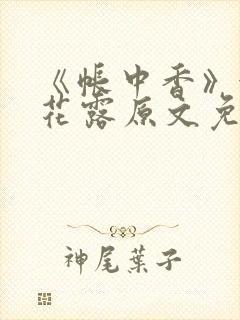 《帐中香》
花露原文免
神尾葉子